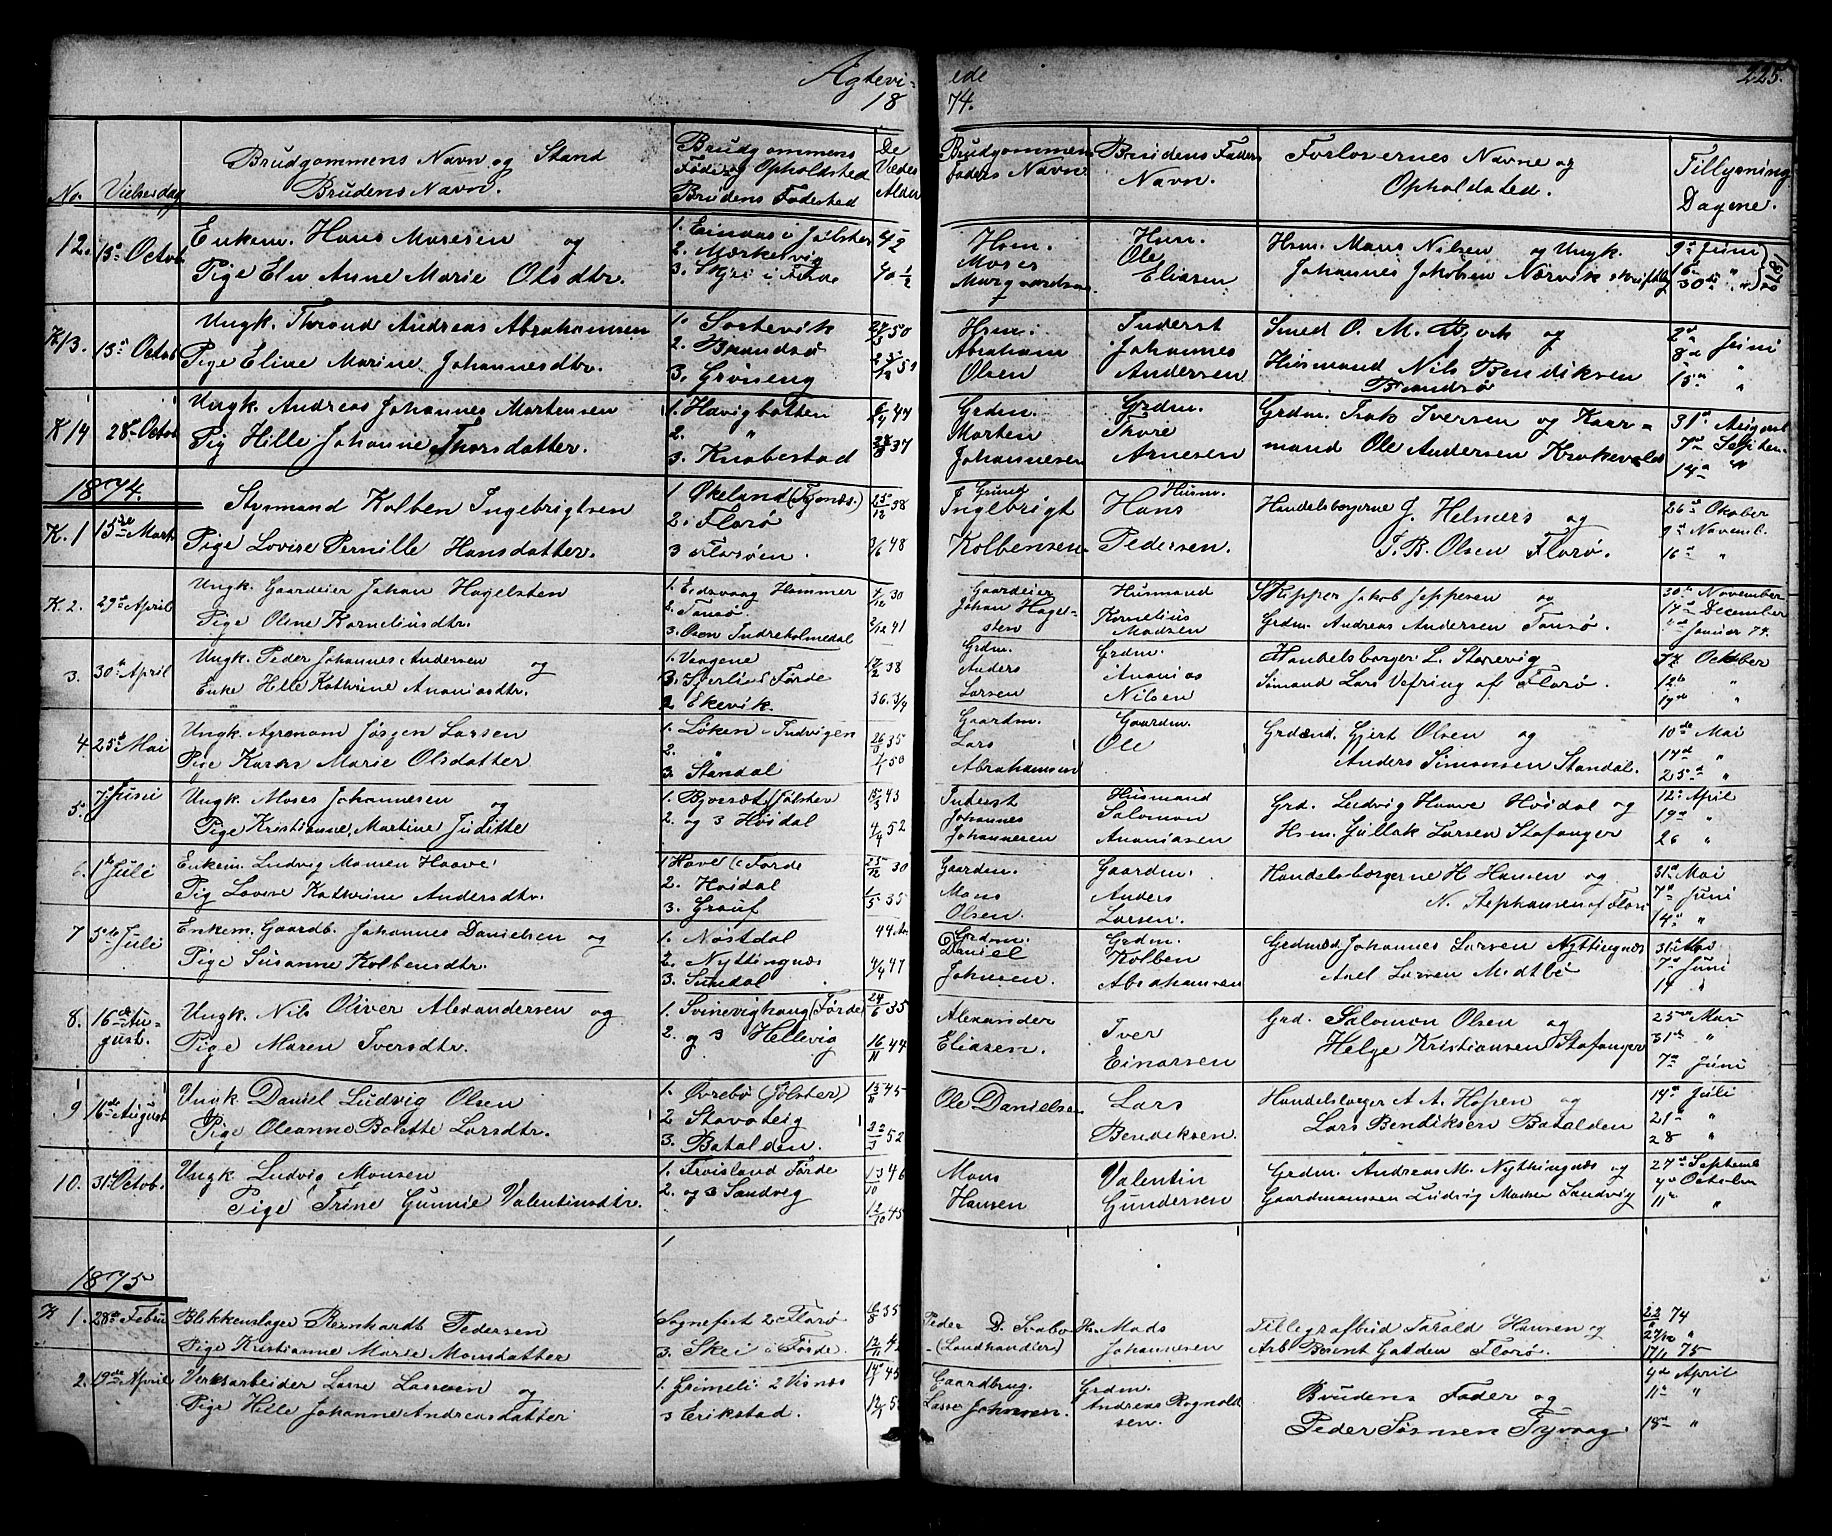 Ægtevi-
18
ede
74.
225.
No.
Vielsesdag
Brudgommens Navn og Stand
Brudens Navn.
Brudgommens
Føde og Opholdsted
Brudens Fødested
De
Viedes
Alder
Brudgommens
Faders Navn.
Brudens Faders
Navn.
Forlovernes Navne og
Ophøldsted.
Tillysning
Dagene.
12. 13de Octob
Enkem. Hans Mosesen og
Pige Elen Anne Marie Olsdtr.
1. Einaas i Jølster
2. Mærkesvig
3. i Førde
42
40 1/2
Hsm.
Moses
Margvardsen
Hsm.
Ole
Eliasen
Hsm. Mons Nilsen og Ungk.
Johannes Jakobsen Nærvik
9de Juni
16 "
30de "
K13. 13de Octob
Ungk. Thrond Andreas Abrahamsen
Pige Eline Marine Johannesdtr.
1. Sostevik
2. Brandsø
3. Grøneng
50
Hsm.
Abraham
Olsen
Inderst
Johannes
Andersen
Smed O. M. Bock og
Husmand Nils Bendiksen
Brandsø
2de Juni
8de "
15de "
K14 28de Octob
Ungk. Andreas Johannes Mortensen
Pig Hille Johanne Thorsdatter.
1. Havigbotten
2. "
3. Knabestad
47
37
Grdm.
Morten
Johannesen
Grdm.
Thore
Arnesen
Grdm. Isak Iversen og Kaar-
mand Ole Andersen Krokevold
31de August
7de Septem.
14de "
1874.
K. 1 15de Marts
Styrmand Kolben Ingebrigtsen
Pige Lovise Pernille Hansdatter.
1 Økeland (Tysnæs)
2. Florø
3 Florøen.
23/12 38
3/6 48
Ingebrigt
Kolbensen
Husm.
Hans
Pedersen.
Handelsborgerne J. Helmers og
T. R. Olsen Florø.
26de Oktober
9de Novemb.
16de "
K. 2. 29de April
Ungk. Gaardeier Johan Hagelsten
Pige Oline Korneliusdtr.
1. Eidsvaag Hammer
2. Tansø
3. Osen Indreholmedal
7/12 30
2/12 41
Gaardeier
Johan Hagel-
sten
Husmand
Kornelius
Madsen
Skipper Jakob Jeppesen og
Grdm. Andreas Andersen Tansø.
30te November
14de December
Januar 74.
3. 30te April
Ungk. Peder Johannes Andersen og
Enke Hille Kathrine Ananiasdtr.
1. Vaagene
3. i Førde
2 Ekevik
17/2 38
36. 3/4
Grdm.
Anders
Larsen
Grdm.
Ananias
Nilsen
Handelsborger L. Storevig
Sømand Lars Vefring af Florø.
Oktober
12te "
19de "
4 25de Mai
Ungk. Agronom Jørgen Larsen
Pige Karen Marie Olsdatter
1. Løken Indvigen
2. "
3. Standal
26/3 35
50
Gaardm.
Lars
Abrahamsen
Gaardm.
Ole
Grdmd. Gjert Olsen og
Anders Simonsen Standal.
10de Mai
17de "
25de "
5. 7de Juni
Ungk. Moses Johannesen og
Pige Kristianne Martine Juditte
1. (Jølster
2. og 3 Høidal
43
4/4 52
Inderst
Johannes
Johannesen
Husmand
Salomon
Ananiasen
Grd. Ludvig Haave Høidal og
Hsm. Gullak Larsen Stafanger
12te April
19de "
26 "
6. 1ste Juli
Enkem. Ludvig Monsen Haave
Pig Lovise Kathrine Andersdtr.
1 Have (Førde
2. Høidal
3. Grauf
23/12 30
1/5 35
Gaardm.
Mons
Olsen.
Gaardm.
Anders
Larsen.
Handelsborgerne H Hansen og
N. Stephansen af Florø
31te Mai
7de Juni
14de "
7 5te Juli
Enkem. Gaardb. Johannes Danielsen og
Pige Susanne Kolbensdtr.
1. Nøstdal
2. Nyttingnæs
3. Sundal
44 Ar.
4/4 47
Grdm.
Daniel
Johnsen
Grdm.
Kolben
Abrahamsen
Grdmd. Johannes Larsen Nyttingnæs
Axel Larsen Midtbø
31te Mai
7de Juni
14 "
8. 16de Au-
gust.
Ungk. Nils Oliver Alexandersen og
Pige Maren Iversdtr.
1. Svinevighaug (Førde)
2. og 3 Hellevig
24/6 35
16/11 44
Alexander
Eliasen.
Iver
Einarsen
Grd. Salomon Olsen og
Helge Kristiansen Stafanger
25de Mai
31te "
7de Juni
9 16de August
Ungk Daniel Ludvig Olsen
Pige Oleanne Bolette Larsdtr.
1. Øvrebø (Jølster)
2 Stavøteig
3. Batalden
13/11 45
22/3 52
Ole Danielsen
Lars
Bendiksen.
Handelsborger A. A. Hopen og
Lars Bendiksen Batalden
14de Juli
21de "
28 "
10. 31te Octob.
Ungk. Ludvig Monsen
Pige Trine Gunnie Valentinsdtr.
1. Froisland Førde
2. og 3 Sandvig
13/10 46
12/10 45
Mons
Hansen
Valentin
Gundersen
Grdm. Andreas M. Nyttingnæs og
Gaardmansøn Ludvig Madsen Sandvig
27de Septemb
4de October
11te "
1875
K 1. 28de Febru
Blikkenslager Reinhardt Pedersen
Pige Kristianne Marie Monsdatter
1. Sognefest 2 Florø
3. Skei i Førde.
35
Peder D.
(Landhandler)
Mads
Johannesen
Tillegrafbud Tarald Hansen og
Arb Bernt Gadden Florø.
22/11 74
27/12 "
17/1 75
2. 19de April
Verksarbeider Lasse Lassesen og
Pige Hille Johanne Andreasdatter
1. Grimeli 2 Visnæs
3 Erikstad.
45
Gaardbrug.
Lasse Johnsen.
Grdm.
Andreas Regnold
sen.
Brudens Fader og
Peder Sørensen Tyvaag.
4de April
11te "
18de "